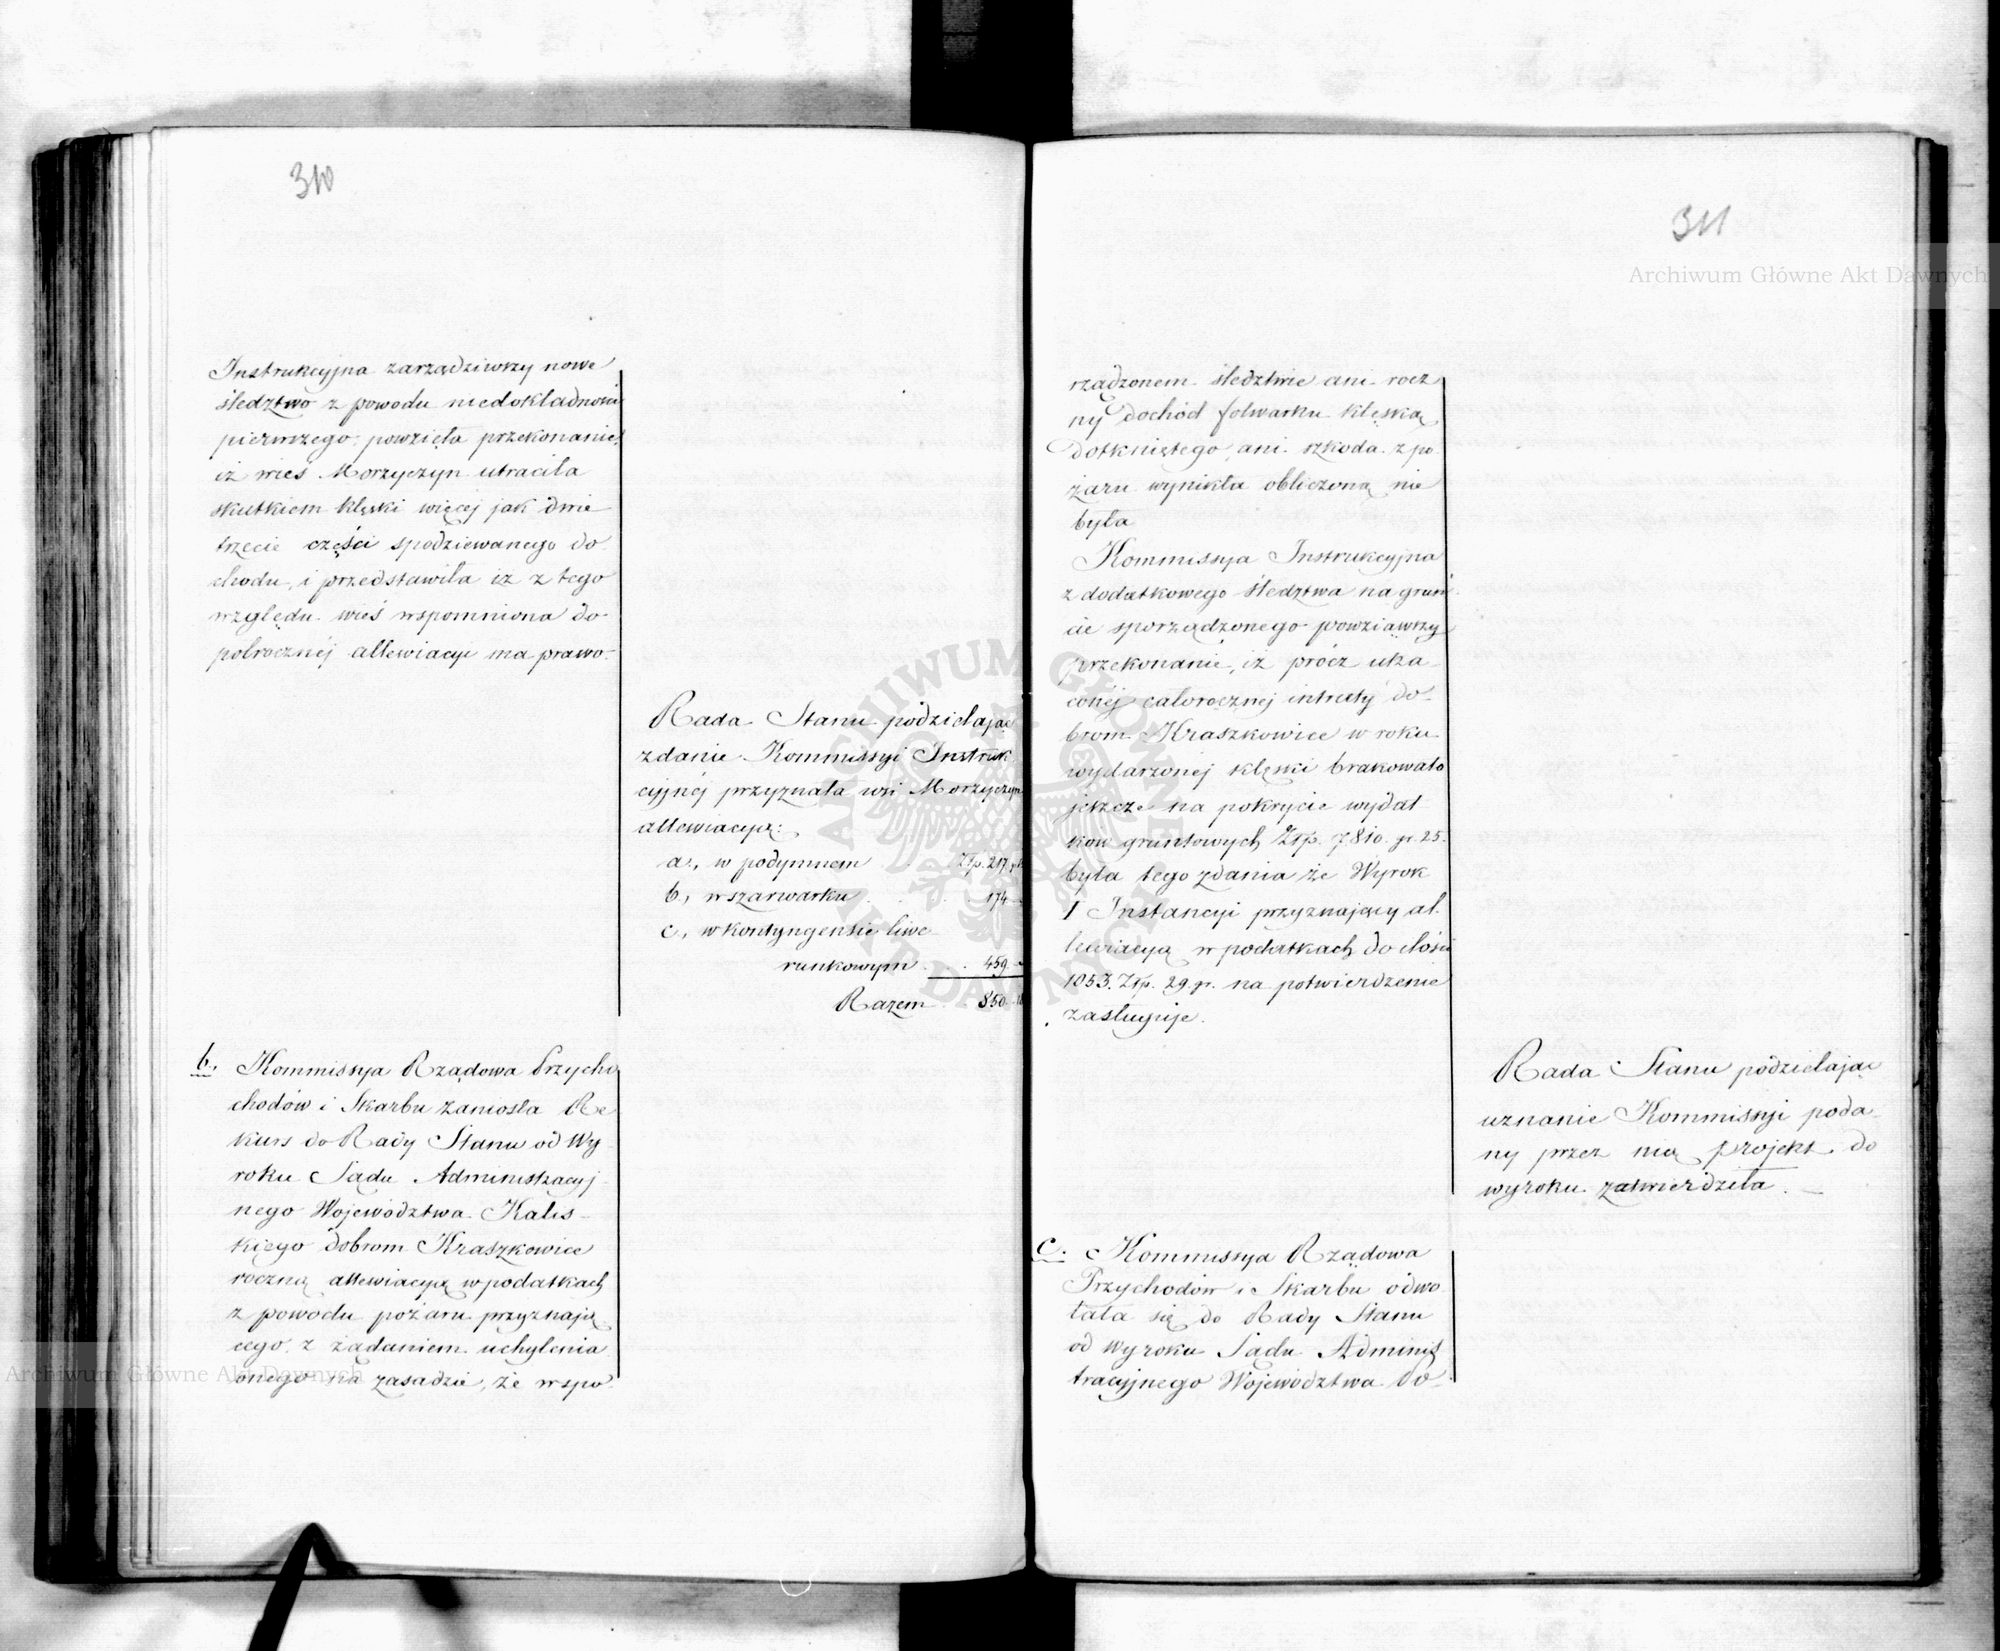 310
Instrukcyjna zarządziwszy nowe
śledztwo z powodu niedokładności
pierwszego, powzięła przekonanie,
iż wieś Morzyczyn utraciła
skutkiem klęski więcej jak dwie
trzecie części spodziewanego do
chodu, i przedstawiła iż z tego
względu wieś wspomniona do
półrocznéj allewiacyi ma prawo.
Rada Stanu podzielając
zdanie Kommissyi Instruk
cyjnéj przyznała wsi Morzyczyn
allewiacyą:
a., w podymnem Złp. 217.
b, w szarwarku 174
c, w kontyngensie liwe-
runkowym 459
Razem 850.
b. Kommissya Rządowa Przycho
chodów i Skarbu zaniosła Re
kurs do Rady Stanu od Wy-
roku Sądu Administracyj-
nego Województwa Kalis-
kiego dobrom Kraszkowice
roczną allewiacyą w podatkach
z powodu pożaru przyznają
cego, z żądaniem uchylenia
onego na zasadzie, że w spo-
311
Archiwum Główne Akt Dawnych
rządzonem śledztwie ani rocz
ny dochód folwarku klęską
dotkniętego, ani szkoda z po
żaru wynikła obliczoną nie
była
Kommissya Instrukcyjna
z dodatkowego śledztwa na grun
cie sporządzonego powziąwszy
przekonanie, iż prócz utra-
conéj całorocznej intraty do-
brom Kraszkowice w roku
wydarzonéj klęski brakowało
jeszcze na pokrycie wydat
ków gruntowych Złp. 7810. gr. 25.
była tego zdania że Wyrok
I Instancyi przyznający al-
lewiacyą w podatkach do ilości
1053. Złp. 29. gr. na potwierdzenie
zasługuje.
Rada Stanu podzielając
uznanie Kommissyi poda-
ny przez nią projekt do
wyroku zatwierdziła.
c. Kommissya Rządowa
Przychodów i Skarbu odwo
łała się do Rady Stanu
od wyroku Sądu Adminis
tracyjnego Województwa Do-
ARCHIWUM GŁÓWNE AKT DAWNYCH
Archiwum Główne Akt Dawnych